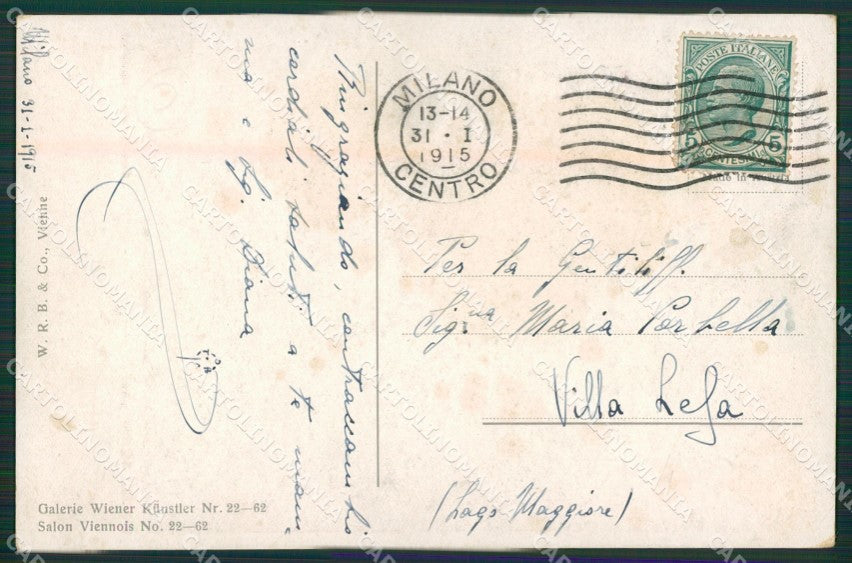 Milano 31-1-1915
Ringraziando, contraccambio
cordiali saluti a te mam=
ma e Sig. Diana
W. R. B. & Co., Vienne
Galerie Wiener Künstler Nr. 22—62
Salon Viennois No. 22—62
MILANO
13-14
31 · I
1915
CENTRO
POSTE ITALIANE
5 5
CENTESIMI
Per la Gentiliss.
Sig.na Maria Porbella
Villa Lesa
(Lago Maggiore)
CARTOLINOMANIA